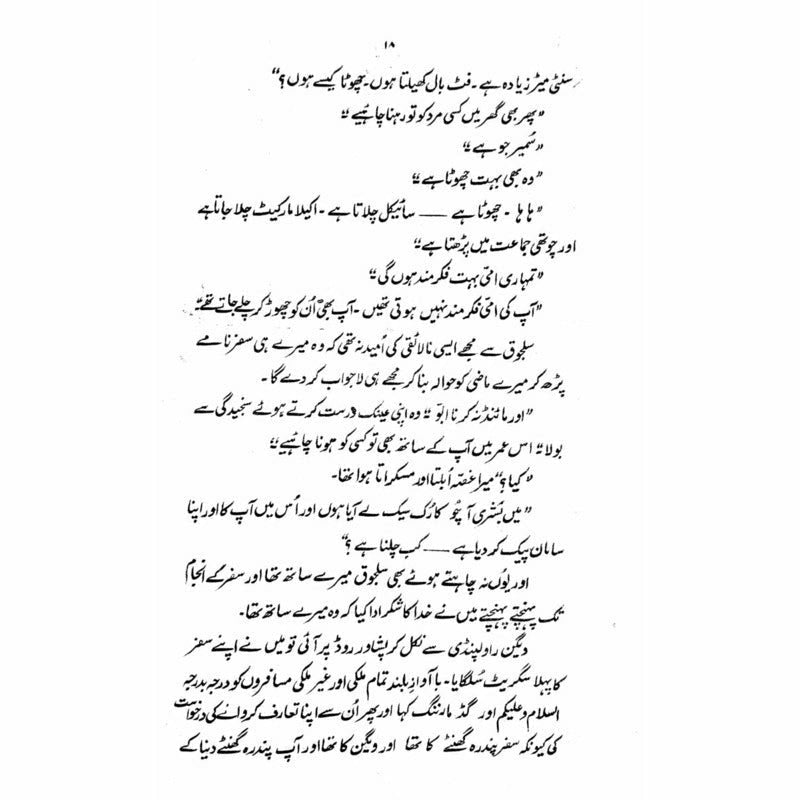 ۱۸
سنٹی میٹر زیادہ ہے۔ فٹ بال کھیلتا ہوں۔ چھوٹا کیسے ہوں؟“
”پھر بھی گھر میں کسی مرد کو تو رہنا چاہئیے“
”سُمیر جو ہے“
”وہ بھی بہت چھوٹا ہے“
”ہا ہا ۔ چھوٹا ہے —— سائیکل چلاتا ہے ۔ اکیلا مارکیٹ چلا جاتا ہے
اور چوتھی جماعت میں پڑھتا ہے“
”تمہاری امّی بہت فکر مند ہوں گی“
”آپ کی امّی فکر مند نہیں ہوتی تھیں ۔ آپ بھی اُن کو چھوڑ کر چلے جاتے تھے“
سلجوق سے مجھے ایسی نالائقی کی اُمید نہ تھی کہ وہ میرے ہی سفر نامے
پڑھ کر میرے ماضی کو حوالہ بنا کر مجھے ہی لاجواب کر دے گا ۔
”اور مائنڈ نہ کرنا ابّو“ وہ اپنی عینک درست کرتے ہوئے سنجیدگی سے
بولا ”اس عمر میں آپ کے ساتھ بھی تو کسی کو ہونا چاہئیے“
”کیا؟“ میرا غصّہ اُبلتا اور مسکراتا ہوا تھا۔
”میں بُشریٰ آپُو کا رُک سیک لے آیا ہوں اور اُس میں آپ کا اور اپنا
سامان پیک کر دیا ہے —— کب چلنا ہے؟“
اور یوں نہ چاہتے ہوئے بھی سلجوق میرے ساتھ تھا اور سفر کے انجام
تک پہنچتے پہنچتے میں نے خدا کا شکر ادا کیا کہ وہ میرے ساتھ تھا۔
ویگن راولپنڈی سے نکل کر پشاور روڈ پر آئی تو میں نے اپنے سفر
کا پہلا سگریٹ سُلگایا۔ با آوازِ بلند تمام ملکی اور غیر ملکی مسافروں کو درجہ بدرجہ
السلام وعلیکم اور گڈ مارننگ کہا اور پھر اُن سے اپنا تعارف کروانے کی درخواست
کی کیونکہ سفر پندرہ گھنٹے کا تھا اور ویگن کا تھا اور آپ پندرہ گھنٹے دنیا کے